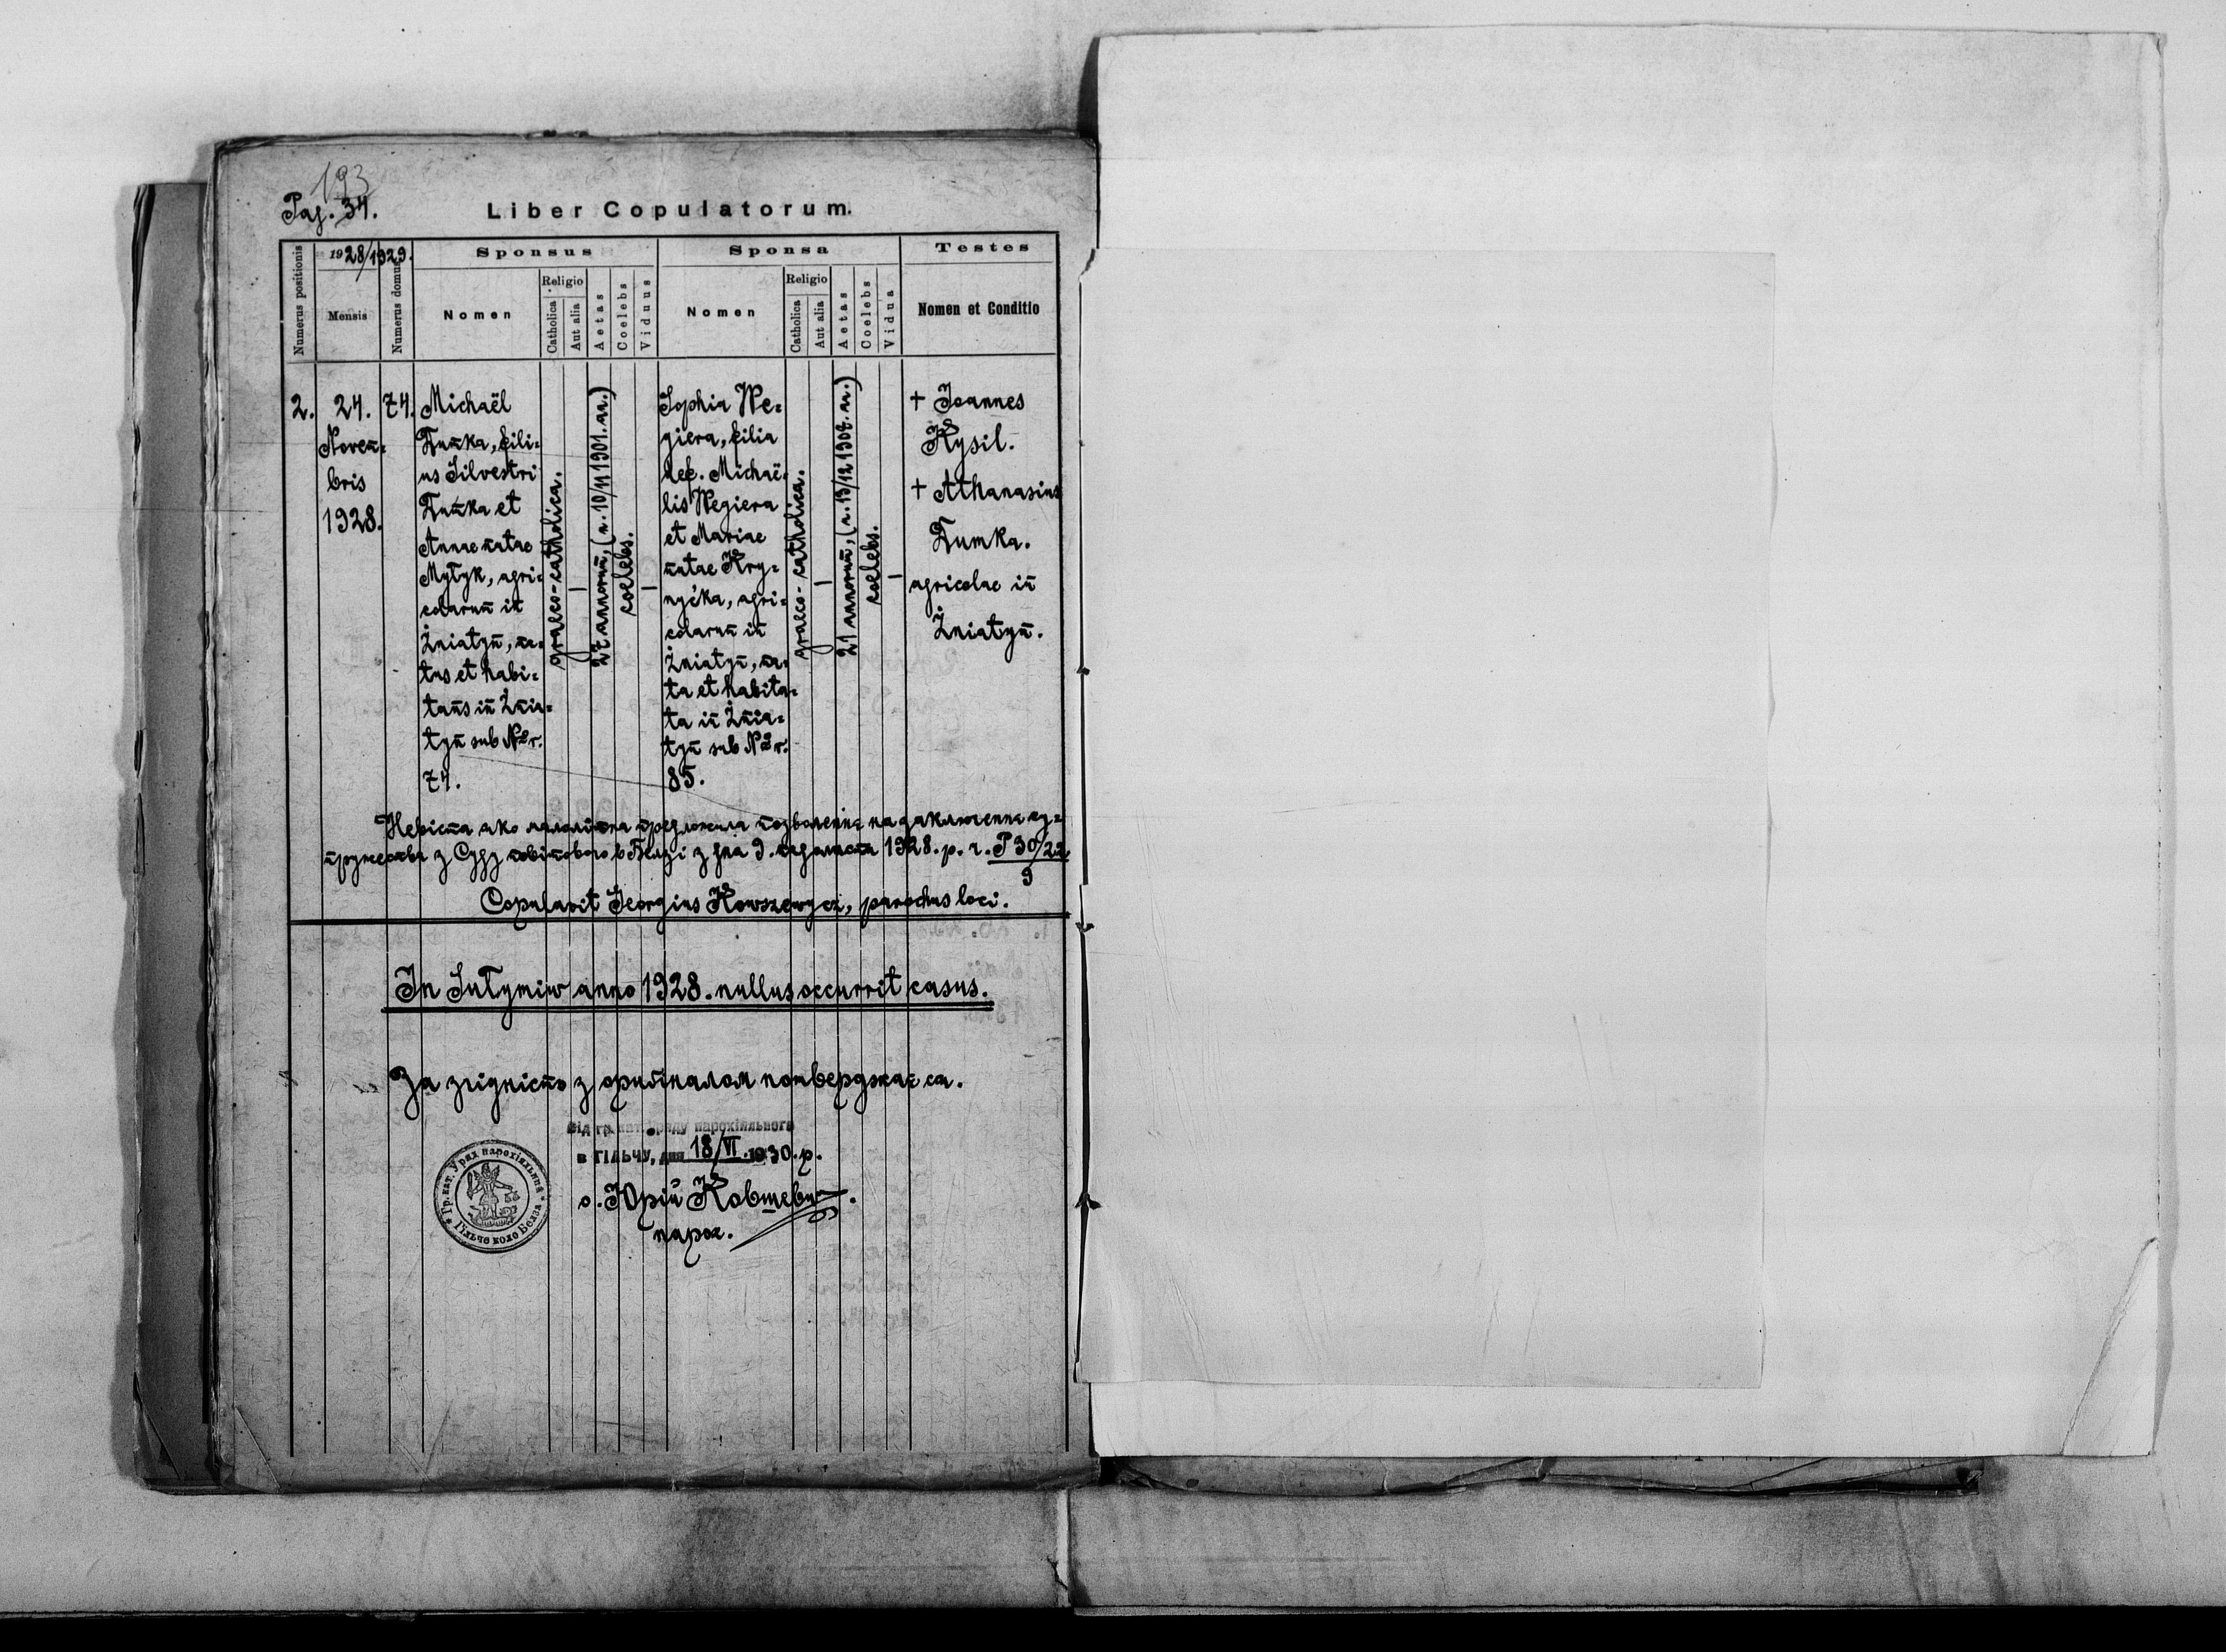 193
Pag. 34.
Liber Copulatorum.
Numerus positionis
1928/1929.
Mensis
Numerus domus
Sponsus
Nomen
Religio
Catholica
Aut alia
Aetas
Coelebs
Viduus
Sponsa
Nomen
Religio
Catholica
Aut alia
Aetas
Coelebs
Vidua
Testes
Nomen et Conditio
2.
24.
Novem=
bris
1928.
74.
Michaël
Dumka, fili=
us Silvestri
Dumka et
Annae natae
Mytyk, agri=
colarum in
Żniatyn, na=
tus et habi=
tans in Żnia=
tyn sub Nr.
74.
graeco-catholica.
27 annorum, (n. 10/11 1901. an.)
coelebs.
Sophia We=
giera, filia
def. Michaë=
lis Wegiera
et Mariae
natae Hry=
nyćka, agri=
colarum in
Żniatyn, na=
ta et habita=
ta in Żnia=
tyn sub Nr.
85.
graeco-catholica.
21 annorum, (n. 13/12 1907. an.)
coelebs.
+ Joannes
Kysil.
+ Athanasius
Dumka.
agricolae in
Żniatyn.
Невіста яко малолітна предложила позволеннє на заключеннє су=
пружества з Суду повітового в Белзі з дня 9. падолиста 1928. р. ч. P 30/22
9
Copulavit Georgius Kowszewycz, parochus loci.
In Tutymiw anno 1928. nullus occurrit casus.
За згідність з оригіналом потверджає ся.
Від гр. кат. Уряду парохіяльного
в ГІЛЬЧУ, дня 18/VI. 1930. р.
о. Юрій Ковшевич.
парох.
Гр. кат. Уряд парохіяльний
в Гільче коло Белза